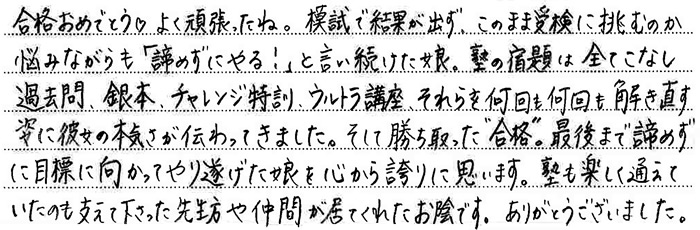 合格おめでとう♡ よく頑張ったね。模試で結果が出ず、このまま受検に挑むのか
悩みながらも「諦めずにやる！」と言い続けた娘。塾の宿題は全てこなし
過去問、銀本、チャレンジ特訓、ウルトラ講座、それらを何回も何回も解き直す
姿に彼女の本気さが伝わってきました。そして勝ち取った“合格”。最後まで諦めず
に目標に向かってやり遂げた娘を心から誇りに思います。塾も楽しく通えて
いたのも支えて下さった先生方や仲間が居てくれたお陰です。ありがとうございました。